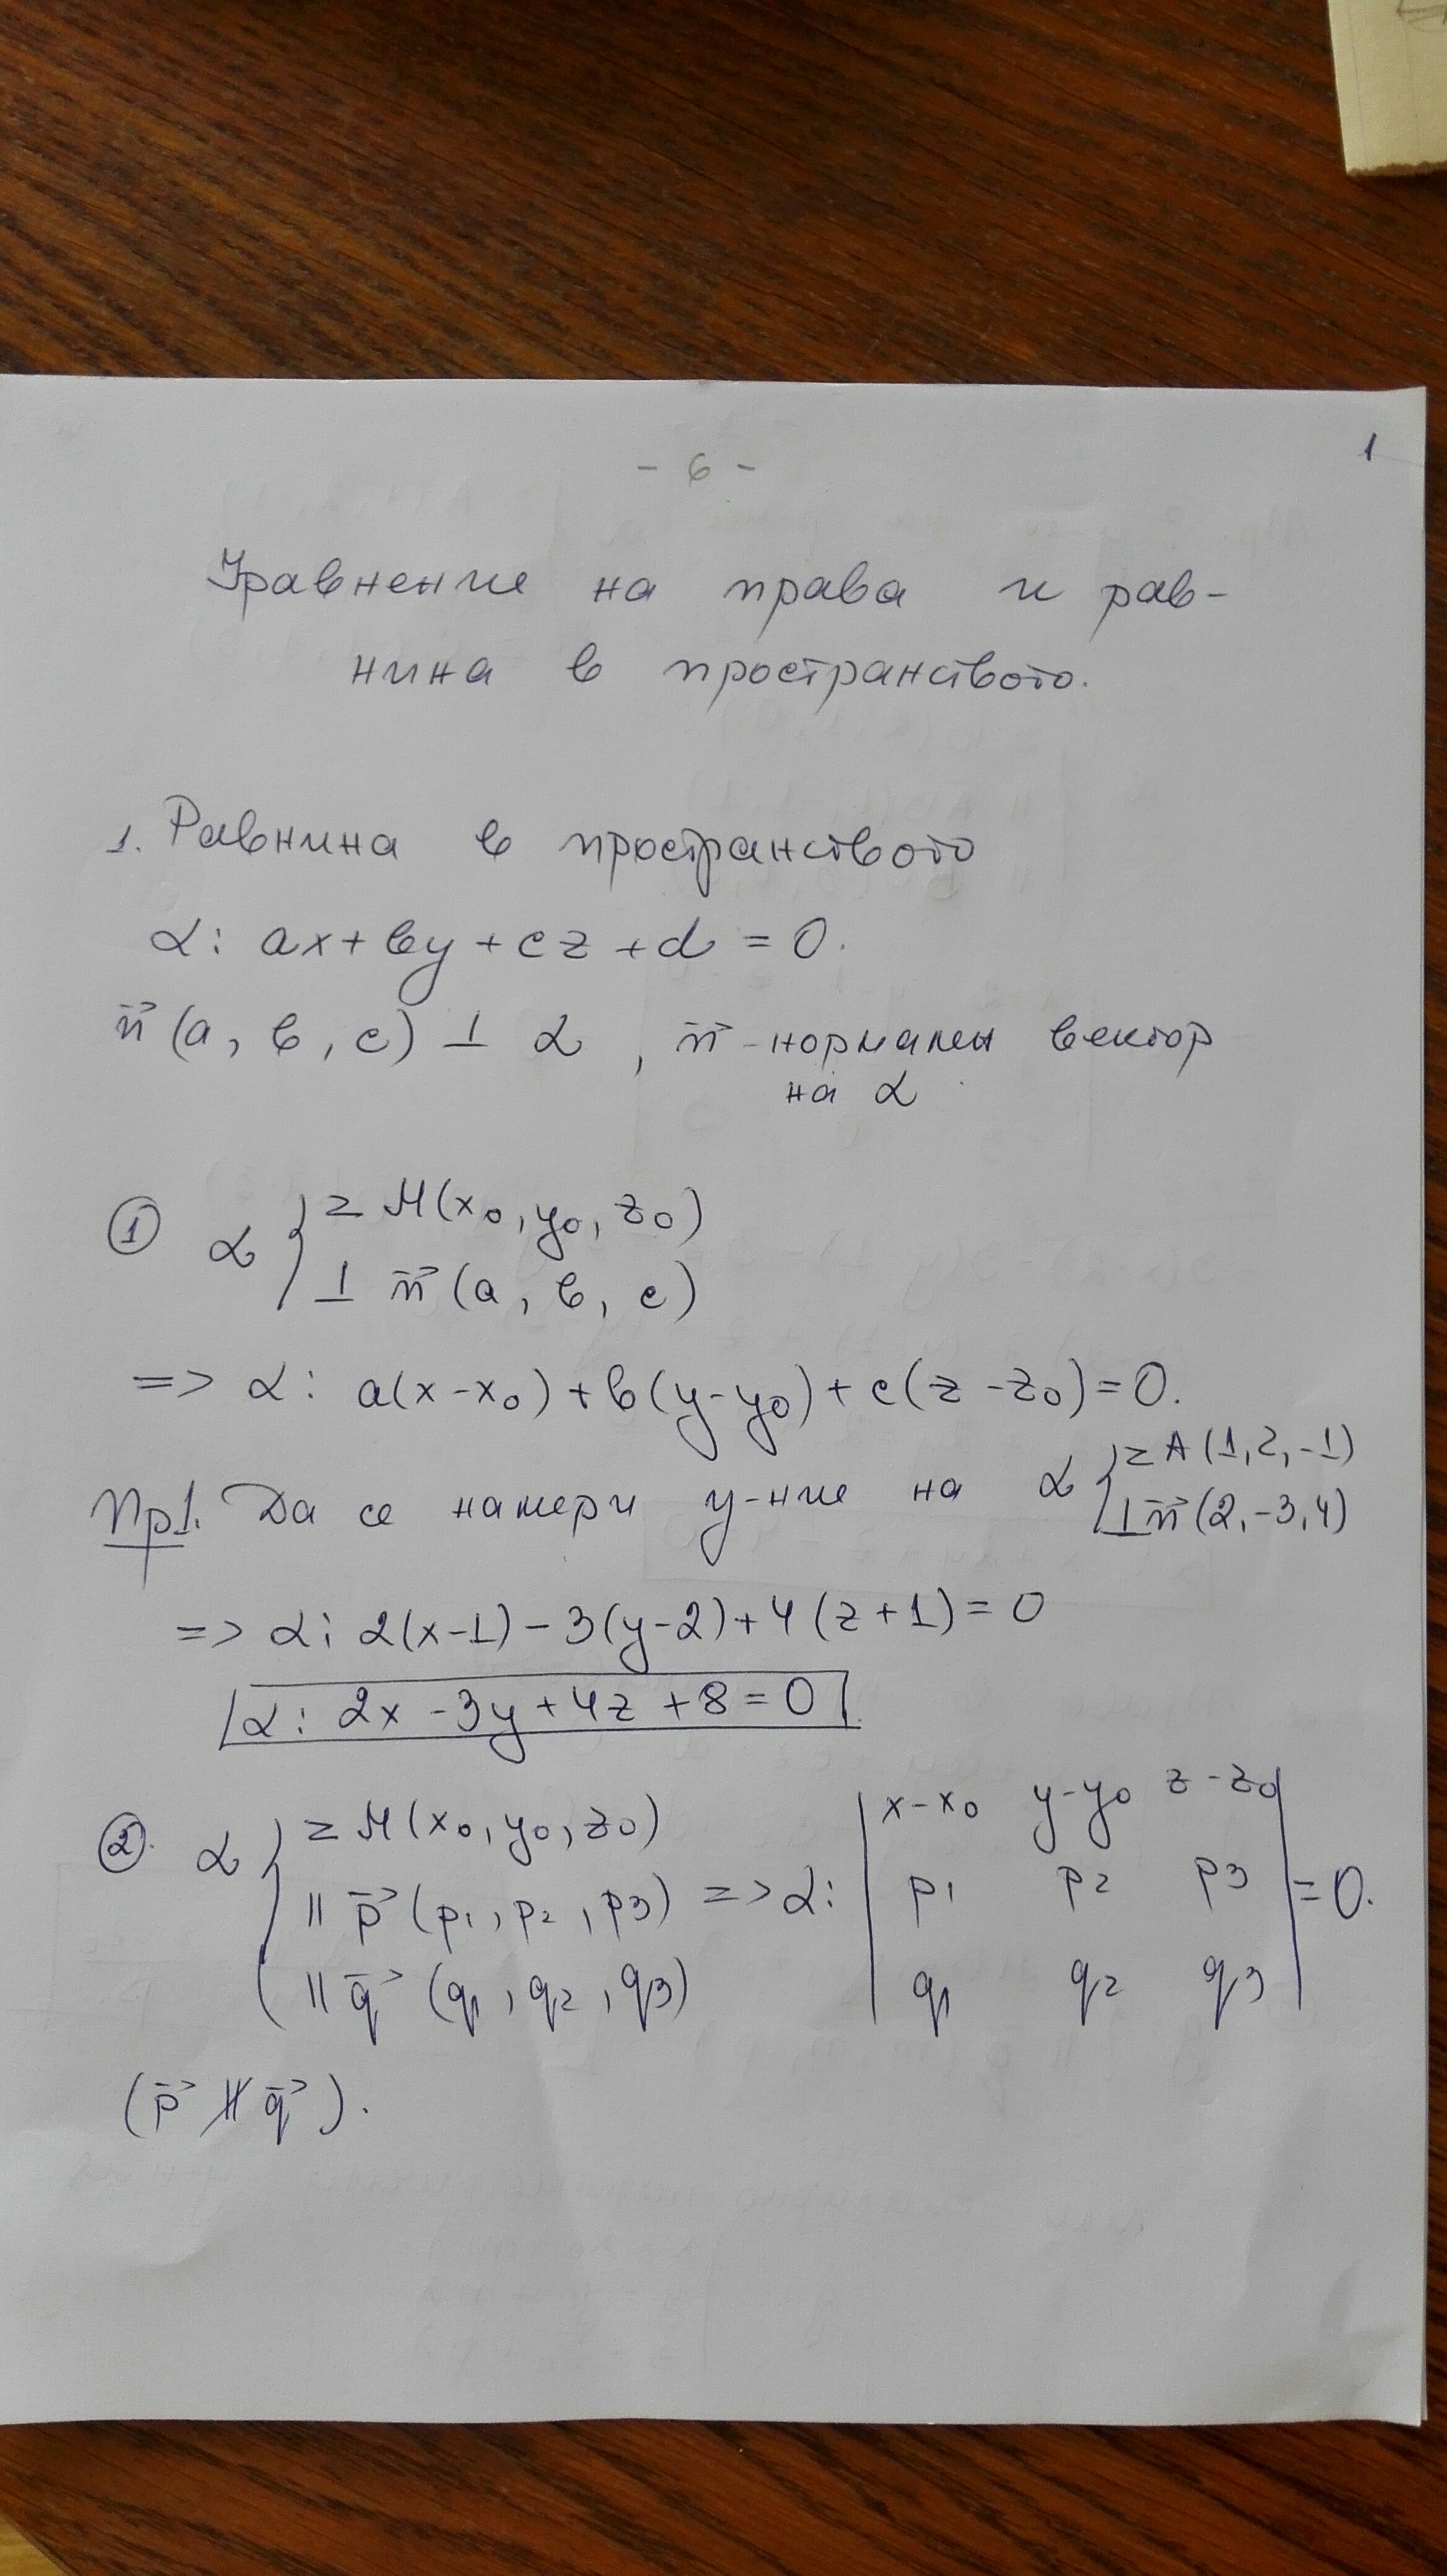 1
- 6 -
Уравнение на права и рав-
нина в пространството.
1. Равнина в пространството
α: ax + by + cz + d = 0.
n⃗ (a, b, c) ⊥ α , n⃗ - нормален вектор
на α
① α { z M(x₀, y₀, z₀)
⊥ n⃗ (a, b, c)
=> α: a(x-x₀) + b(y-y₀) + c(z-z₀) = 0.
Пр1. Да се намери у-ние на α { z A(1,2,-1)
⊥ n⃗ (2,-3,4)
=> α: 2(x-1) - 3(y-2) + 4(z+1) = 0
α: 2x - 3y + 4z + 8 = 0
②. α { z M(x₀, y₀, z₀)
|| p⃗ (p₁, p₂, p₃) => α: | x-x₀ y-y₀ z-z₀
p₁ p₂ p₃ | = 0.
|| q⃗ (q₁, q₂, q₃) q₁ q₂ q₃
(p⃗ ∦ q⃗).